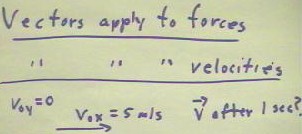 Vectors apply to forces
" " " velocities
V₀y=0 V₀x = 5 m/s V⃗ after 1 sec?